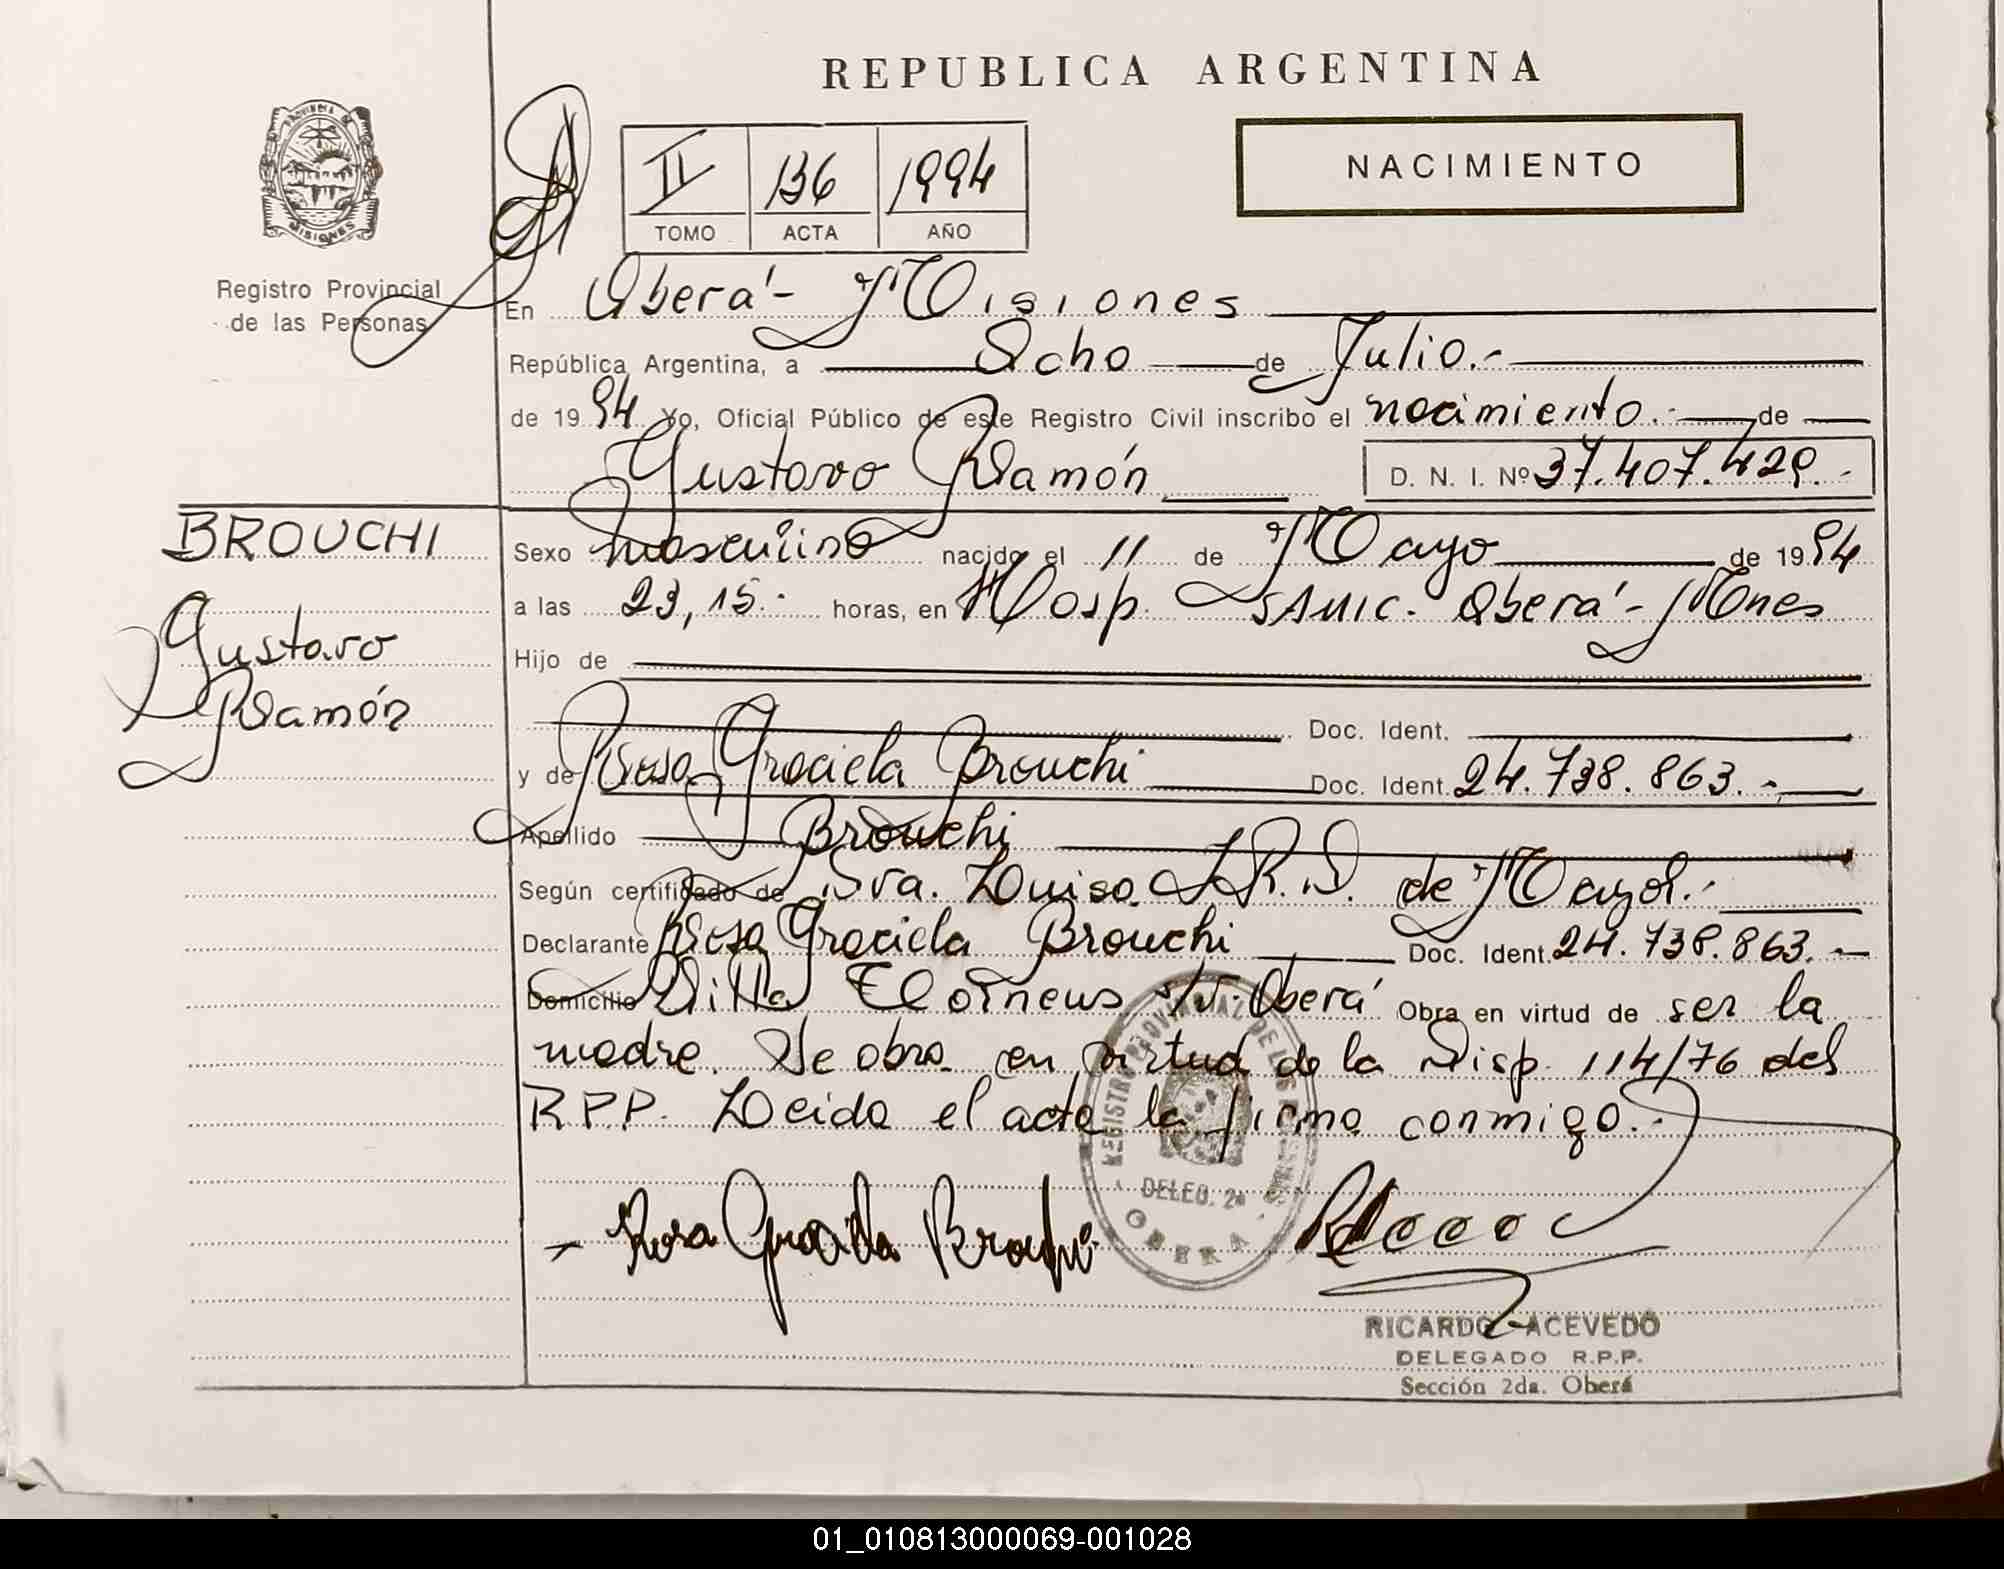 REPUBLICA ARGENTINA
PROVINCIA DE MISIONES
Registro Provincial
de las Personas
II 136 1994
TOMO ACTA AÑO
NACIMIENTO
En Oberá - Misiones
República Argentina, a Ocho de Julio.-
de 1994 Yo, Oficial Público de este Registro Civil inscribo el nacimiento.- de
Gustavo Ramón D. N. I. Nº 37.407.429.-
BROUCHI
Gustavo
Ramón
Sexo masculino nacido el 11 de Mayo de 1994
a las 23,15.- horas, en Hosp. SAMIC. Oberá - Mnes
Hijo de
Doc. Ident.
y de Rosa Graciela Brouchi Doc. Ident. 24.738.863.-
Apellido Brouchi
Según certificado de Dra. Luisa R. de Mayol.-
Declarante Rosa Graciela Brouchi Doc. Ident. 24.738.863.-
Domicilio Villa s/n. Oberá Obra en virtud de ser la
madre. Se obra en virtud de la Disp. 114/76 del
R.P.P. Leída el acta la firma conmigo.-
REGISTRO PROVINCIAL DE LAS PERSONAS
DELEG. 2ª
OBERA
Rosa Graciela Brouchi
RICARDO ACEVEDO
DELEGADO R.P.P.
Sección 2da. Oberá
01_010813000069-001028